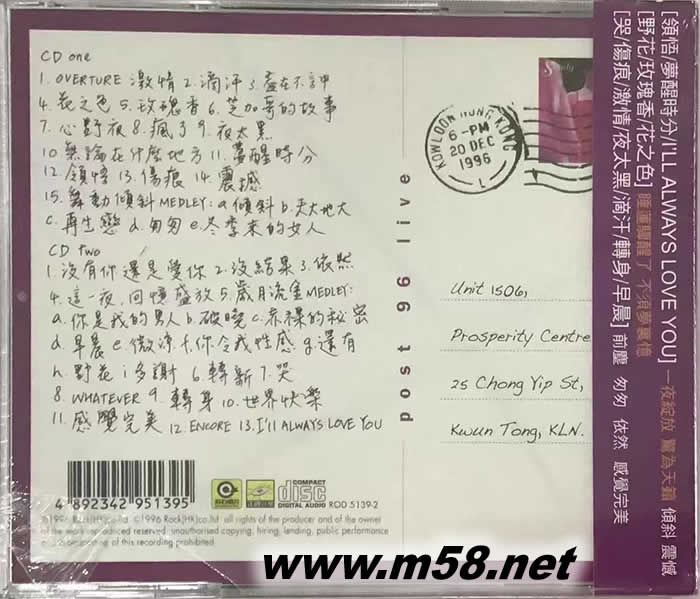 CD one
1. OVERTURE 激情 2. 滴汗 3. 盡在不言中
4. 花之色 5. 玫瑰香 6. 芝加哥的故事
7. 心野夜 8. 瘋了 9. 夜太黑
10. 無論在什麼地方 11. 夢醒時分
12. 領悟 13. 傷痕 14. 震撼
15. 舞動傾斜 MEDLEY: a. 傾斜 b. 天大地大
c. 再生戀 d. 匆匆 e. 冬季來的女人
CD two
1. 沒有你還是愛你 2. 沒結果 3. 依然
4. 這一夜,回憶盛放 5. 歲月流金 MEDLEY:
a. 你是我的男人 b. 破曉 c. 赤裸的秘密
d. 早晨 e. 微涼 f. 你令我性感 g. 還有
h. 野花 i. 多謝 6. 轉新 7. 哭
8. WHATEVER 9. 轉身 10. 世界快樂
11. 感覺完美 12. ENCORE 13. I'll ALWAYS LOVE YOU
4 892342 951395
COMPACT
disc
DIGITAL AUDIO
ROD 5139-2
1996 Rock(HK)co.ltd ©1996 Rock(HK)co.ltd all rights of the producer and of the owner
of the work reproduced reserved. unauthorised copying, hiring, lending, public performance
and broadcasting of this recording prohibited.
post 96 live
KOWLOON HONG KONG
6-PM
20 DEC
1996
L
Unit 1506,
Prosperity Centre
25 Chong Yip St,
Kwun Tong, KLN.
[領悟/夢醒時分/I'LL ALWAYS LOVE YOU] 一夜綻放 驚為天籟 傾斜 震憾
[野花/玫瑰香/花之色] 睡蓮驚醒了 不須夢裏憶
[哭/傷痕/激情/夜太黑/滴汗/轉身/早晨] 前塵 匆匆 依然 感覺完美
www.m58.net